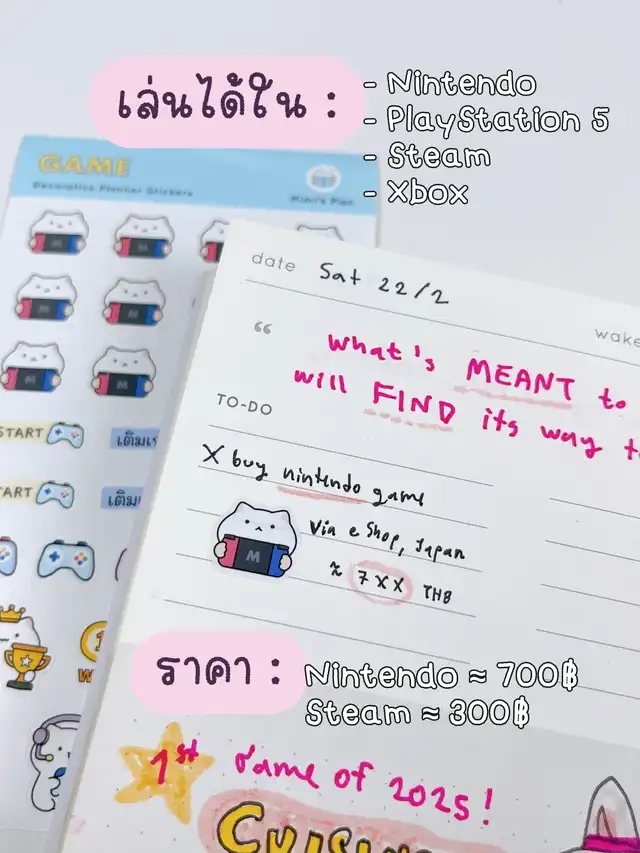 เล่นได้ใน :
- Nintendo
- PlayStation 5
- Steam
- Xbox
GAME
Decorative Planner Stickers
date Sat 22/2
wake
“
what's MEANT to
will FIND its way to
TO-DO
X buy nintendo game
Via e Shop, Japan
≈ 7XX THB
M
M
M
M
M
M
M
START
START
ราคา :
Nintendo ≈ 700฿
Steam ≈ 300฿
1st Game of 2025!